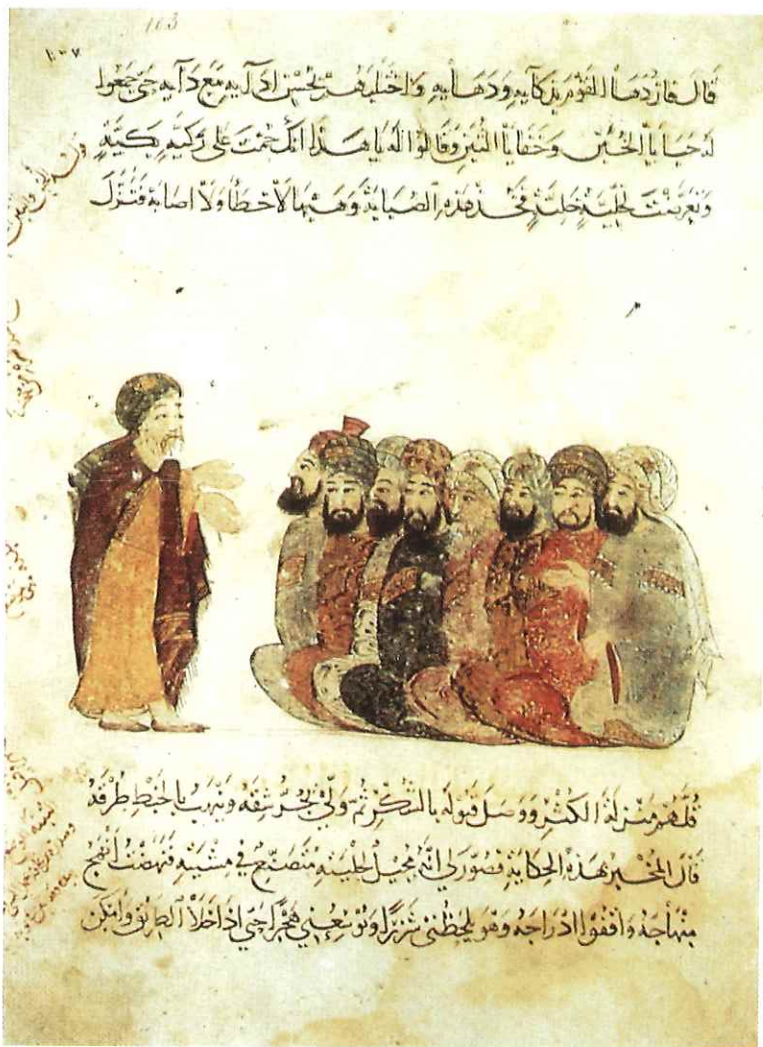 103
١٠٣
قال فازدها القوم بذكآيه ودهآيه واختلبهم بحسن ادآيه مع دآيه حتى جمعوا
له خبايا الخبن وخفايا الثبن وقالوا له يا هذا انك حمت على ركية بكية
وتعرضت لخلية خلية فخذ هذه الصبابة وهبها لا خطأ ولا اصابة فنزل
قلهم منزلة الكثر ووصل قبوله بالشكر ثم ولى يجر شقه وينهب بالخبط طرقه
قال المخبر بهذه الحكاية فصور لي انه محيل لحليته متصنع في مشيته فنهضت انهج
منهاجه واقفوا ادراجه وهو يلحظني شزرا ويوسعني هجرا حتى اذا خلا الطريق وامكن